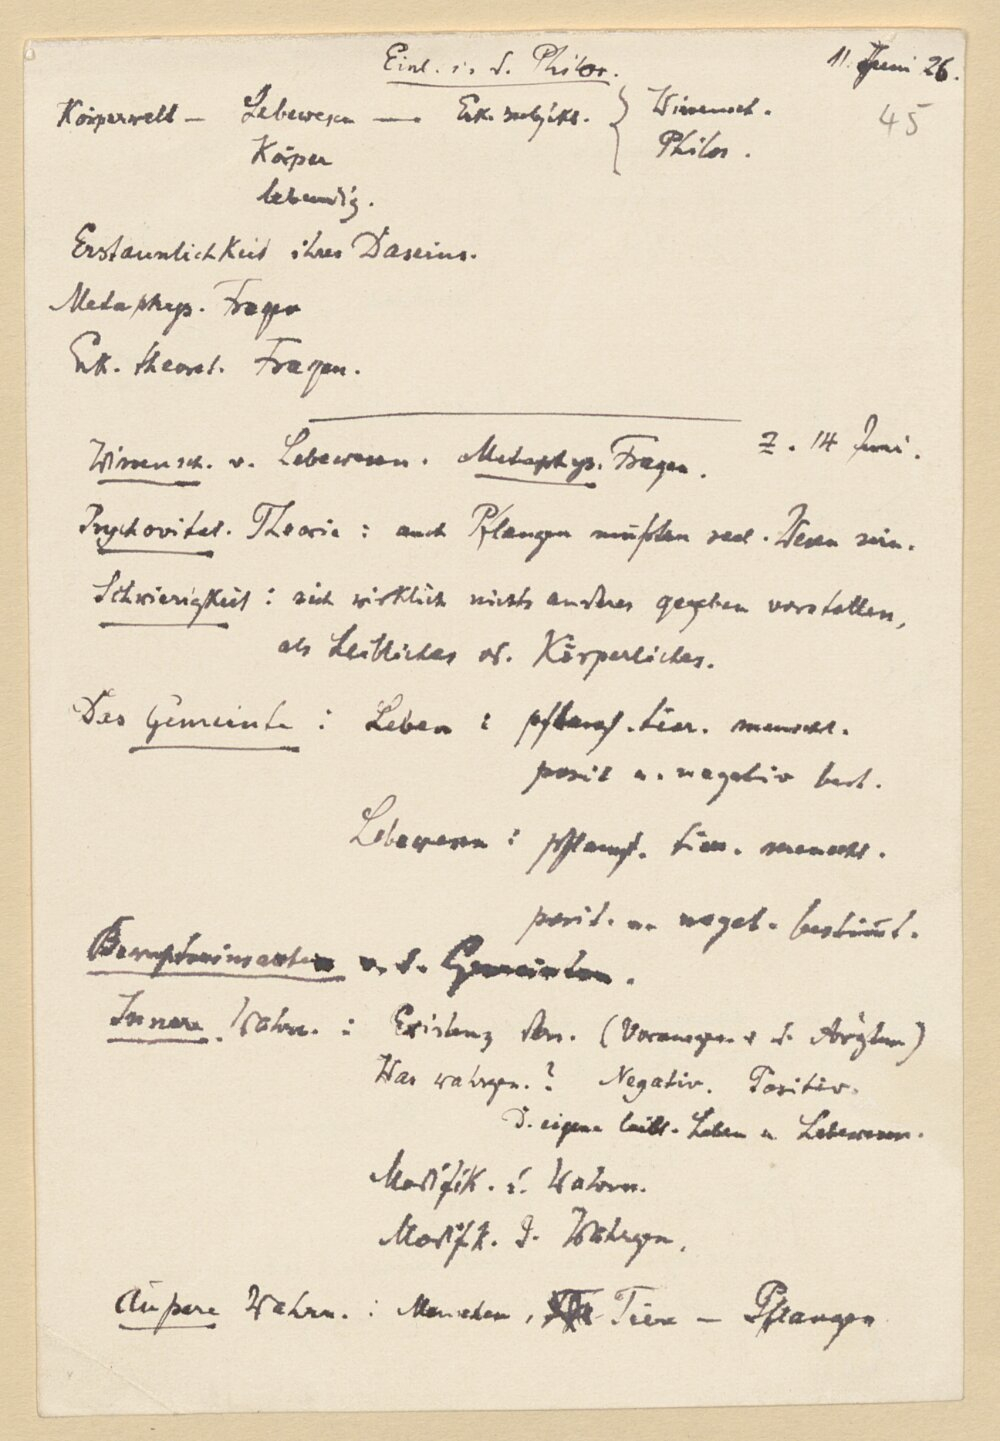 Einl. i. d. Philos. 11. Juni 26.
45
Körperwelt – Lebewesen — Erk. subjekt. } Wissensch.
Körper Philos.
lebendig.
Erstaunlichkeit ihres Daseins.
Metaphys. Fragen
Erk. theoret. Fragen.
Wissensch. v. Lebewesen. Metaphys. Fragen. 14 Juni.
Psychovital. Theorie : auch Pflanzen müßten seel. Wesen sein.
Schwierigkeit : sich wirklich nichts anderes gegeben vorstellen,
als Leibliches od. Körperliches.
Das Gemeinte : Leben : pflanzl. tier. menschl.
posit u. negativ best.
Lebewesen : pflanzl. tier. menschl.
posit. u. negat. bestimmt.
Bewußtseinsarten v. d. Gemeinten.
Innere Wahrn. : Existenz ders. (Vorausges. v. d. Ärzten)
Was wahrgen. ? Negativ. Positiv.
D. eigene leibl. Leben u. Lebewesen.
Modifik. d. Wahrn.
Modifik. d. Wahrgen.
Äußere Wahrn. : Menschen, Tiere – Pflanzen